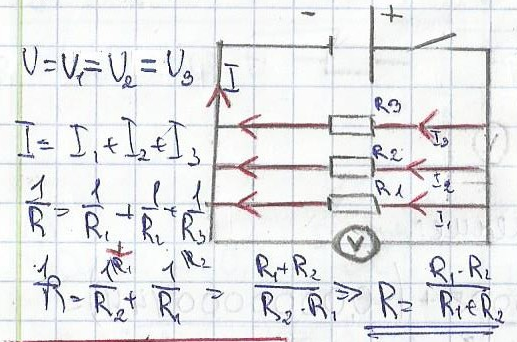 - +
V=V₁=V₂=V₃
I
R3
I₃
I=I₁+I₂+I₃
R2
I₂
R1
I₁
1/R=1/R₁+1/R₂+1/R₃
V
1/R=1/R₂+1/R₁=R₁+R₂/R₂·R₁⇒R=R₁·R₂/R₁+R₂
R₁ R₂